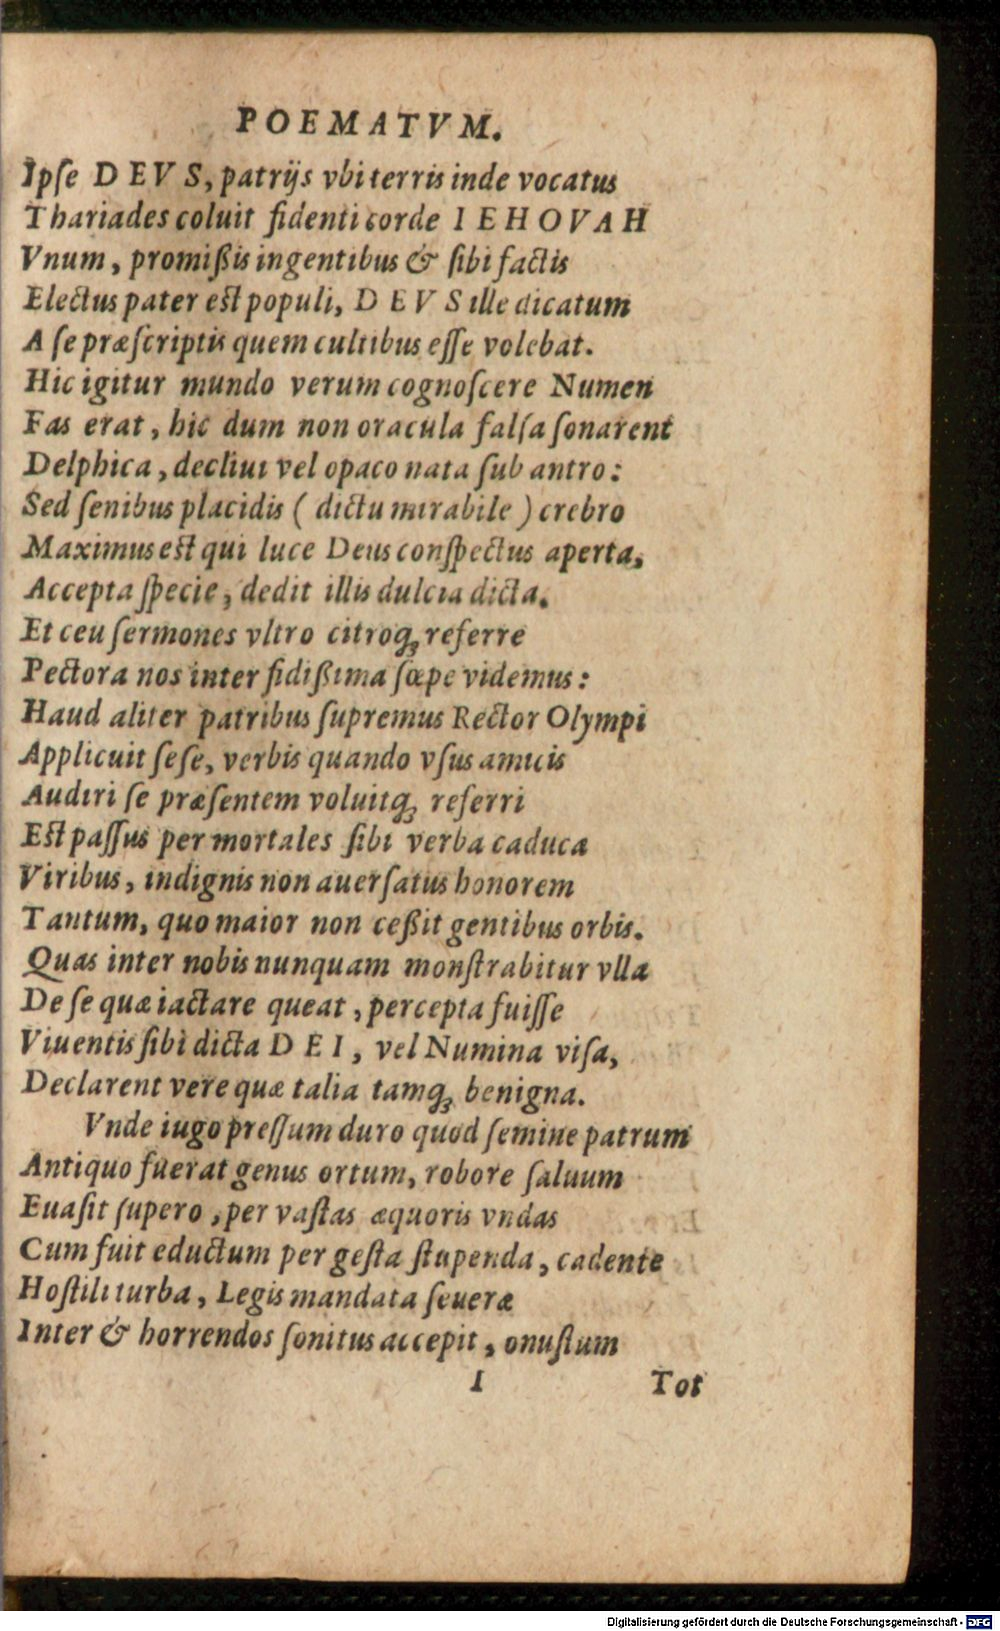 POEMATVM.
Ipſe DEVS, patrijs vbi terris inde vocatus
Thariades coluit fidenti corde IEHOVAH
Vnum, promißis ingentibus & ſibi factis
Electus pater est populi, DEVS ille dicatum
A ſe præſcriptis quem cultibus eſſe volebat.
Hic igitur mundo verum cognoſcere Numen
Fas erat, hic dum non oracula falſa ſonarent
Delphica, decliui vel opaco nata ſub antro:
Sed ſenibus placidis ( dictu mirabile ) crebro
Maximus est qui luce Deus conſpectus aperta,
Accepta ſpecie, dedit illis dulcia dicta.
Et ceu ſermones vltro citroq; referre
Pectora nos inter fidißima ſæpe videmus:
Haud aliter patribus ſupremus Rector Olympi
Applicuit ſeſe, verbis quando vſus amicis
Audiri ſe præſentem voluitq; referri
Est paſſus per mortales ſibi verba caduca
Viribus, indignis non auerſatus honorem
Tantum, quo maior non ceßit gentibus orbis.
Quas inter nobis nunquam monſtrabitur vlla
De ſe quæ iactare queat, percepta fuiſſe
Viuentis ſibi dicta DEI, vel Numina viſa,
Declarent vere quæ talia tamq; benigna.
Vnde iugo preſſum duro quod ſemine patrum
Antiquo fuerat genus ortum, robore ſaluum
Euaſit ſupero, per vaſtas æquoris vndas
Cum fuit eductum per geſta ſtupenda, cadente
Hoſtili turba, Legis mandata ſeueræ
Inter & horrendos ſonitus accepit, onuſtum
I Tot
Digitalisierung gefördert durch die Deutsche Forschungsgemeinschaft - DFG